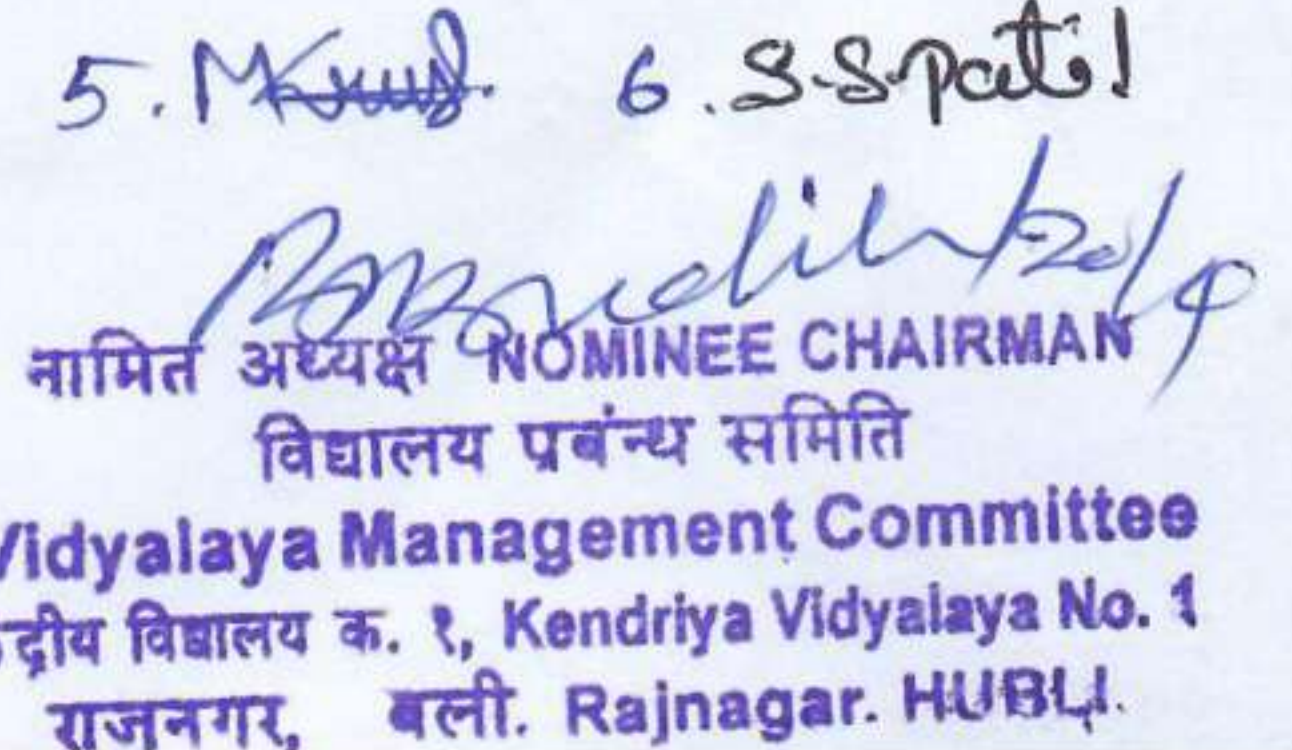 5. 6. S.S.Patil
नामित अध्यक्ष NOMINEE CHAIRMAN
विद्यालय प्रबंन्ध समिति
Vidyalaya Management Committee
द्रीय विद्यालय क. १, Kendriya Vidyalaya No. 1
राजनगर, बली. Rajnagar. HUBLI.